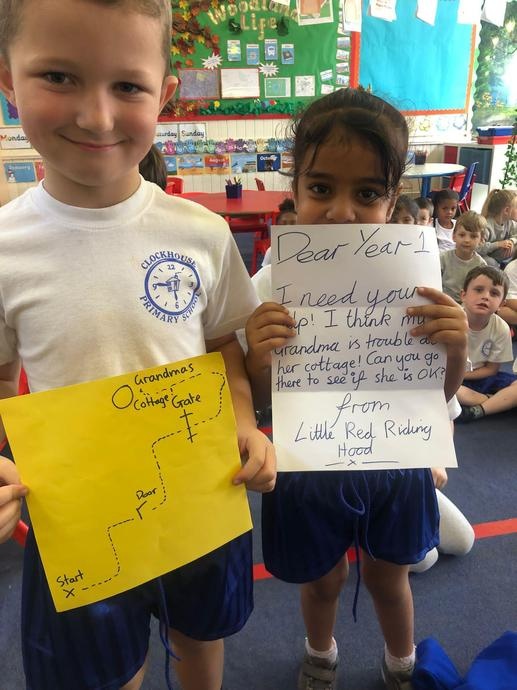 Woodland
Life
Monday
Saturday Sunday
October
CLOCKHOUSE
PRIMARY SCHOOL
Dear Year 1
I need your
help! I think my
Grandma is trouble at
her cottage! Can you go
there to see if she is OK?
from
Little Red Riding
Hood
x
Grandmas
Cottage
Gate
Door
Start
X